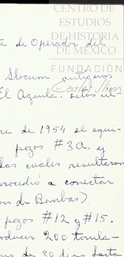 CENTRO DE
ESTUDIOS
DE HISTORIA
DE MÉXICO
FUNDACIÓN
Carlos Slim
de Operador del
antiguos
El Aguila.
re de 1954 el equi-
pozos #3a. y
los cuales resultaron
procedió a conectar
de Bombas).
pozos #12 y #15.
200 tonela-
de 30 dias hasta